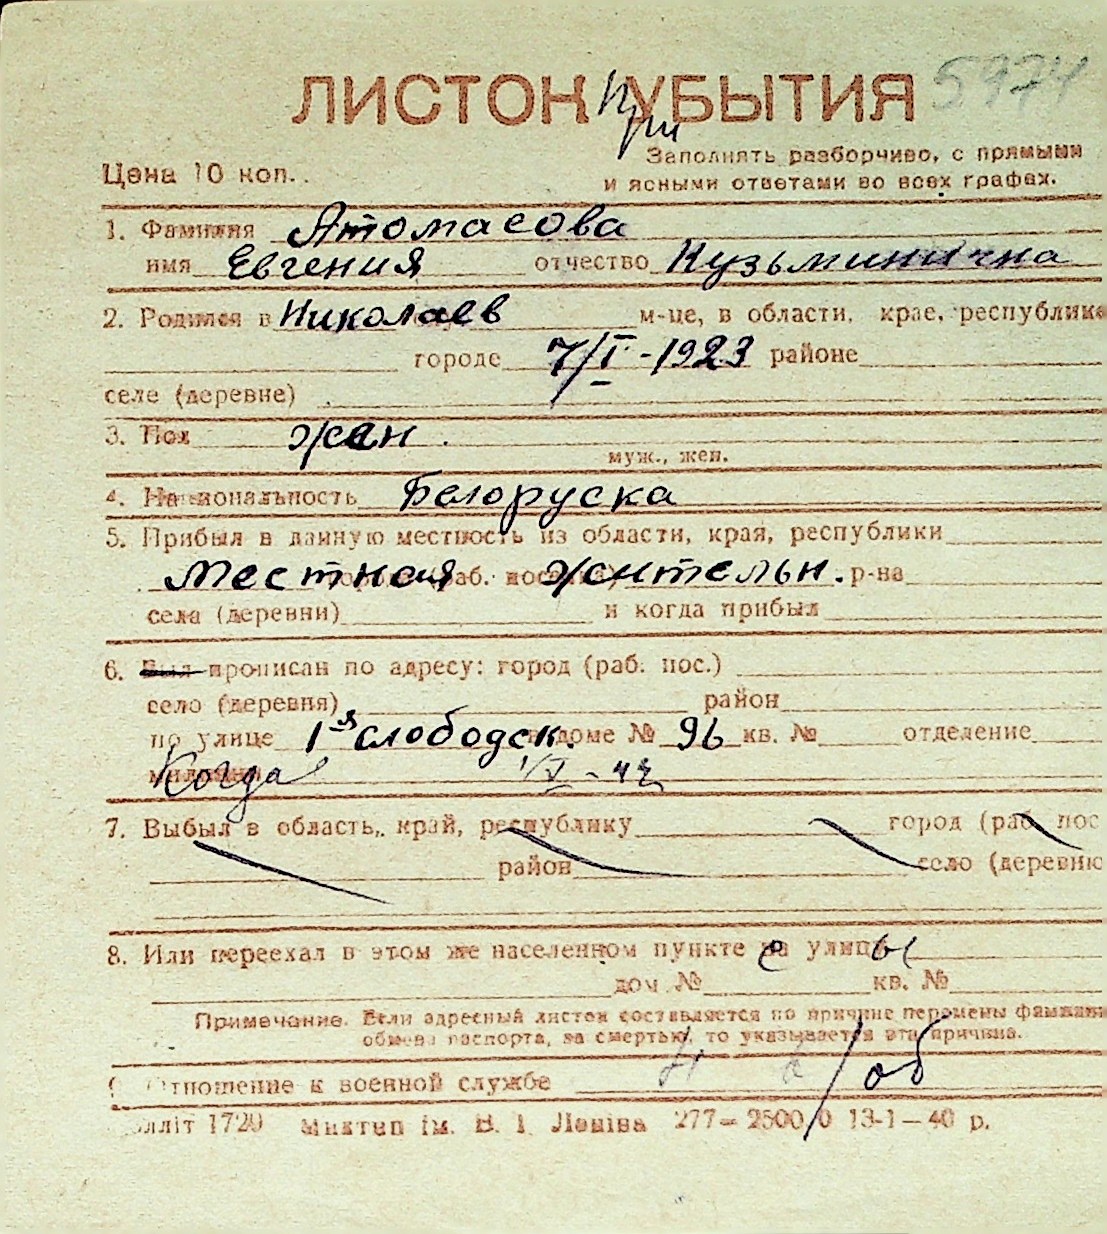 ЛИСТОК При УБЫТИЯ 5974
Заполнять разборчиво, с прямыми
Цена 10 коп.
и ясными ответами во всех графах.
1. Фамилия Атомасова
имя Евгения отчество Кузьминична
2. Родился в Николаев м-це, в области, крае, республике
городе 7/I-1923 районе
селе (деревне)
3. Пол жен.
муж., жен.
4. Национальность Белоруска
5. Прибыл в данную местность из области, края, республики
Местная жительн. р-на
села (деревни) и когда прибыл
6. Был прописан по адресу: город (раб. пос.)
село (деревня) район
по улице 1я слободск. доме № 96 кв. № отделение
милиции Когда 1/V-42
7. Выбыл в область, край, республику город (раб. пос
район село (деревню
8. Или переехал в этом же населенном пункте с улицы
дом № кв. №
Примечание. Если адресный листок составляется по причине перемены фамилии
обмена паспорта, за смертью, то указывается эта причина.
9. Отношение к военной службе н/об
літ 1720 Миктип ім. В. І. Леніна 277—25000 13-1—40 р.